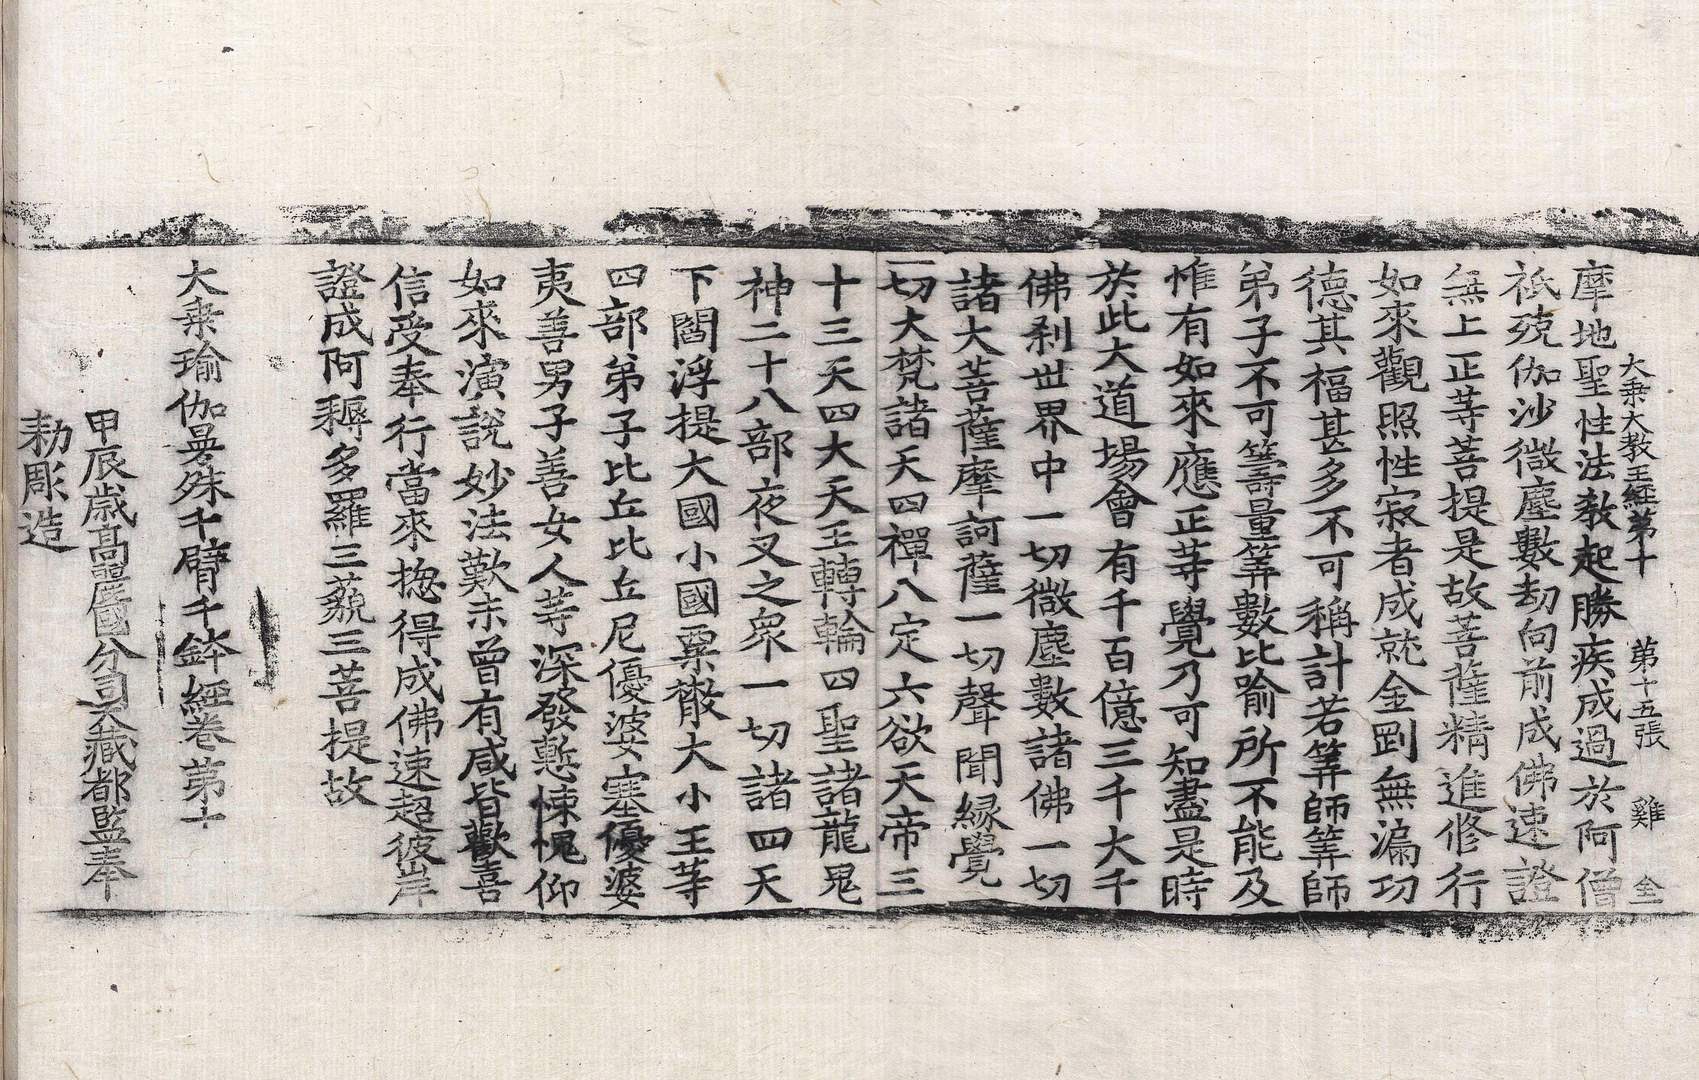 大乗大教王經第十　第十五張　雞　全
摩地聖性法教起勝疾成過於阿僧
祇殑伽沙微塵數劫向前成佛速證
無上正䓁菩提是故菩薩精進修行
如來觀照性寂者成就金剛無漏功
德其福甚多不可稱計若筭師筭師
弟子不可籌量筭數比喻所不能及
惟有如來應正䓁覺乃可知盡是時
於此大道場會有千百億三千大千
佛刹世界中一切微塵數諸佛一切
諸大菩薩摩訶薩一切聲聞緣覺
一切大梵諸天四禪八定六欲天帝三
十三天四大天王轉輪四聖諸龍鬼
神二十八部夜叉之衆一切諸四天
下閻浮提大國小國粟散大小王䓁
四部弟子比丘比丘尼優婆塞優婆
夷善男子善女人䓁深發慙悚愧仰
如來演說妙法歎未曾有咸皆歡喜
信受奉行當來揔得成佛速超彼岸
證成阿耨多羅三藐三菩提故
大乗瑜伽曼殊千臂千鉢經卷第十
甲辰歲高麗國分司大藏都監奉
勑彫造